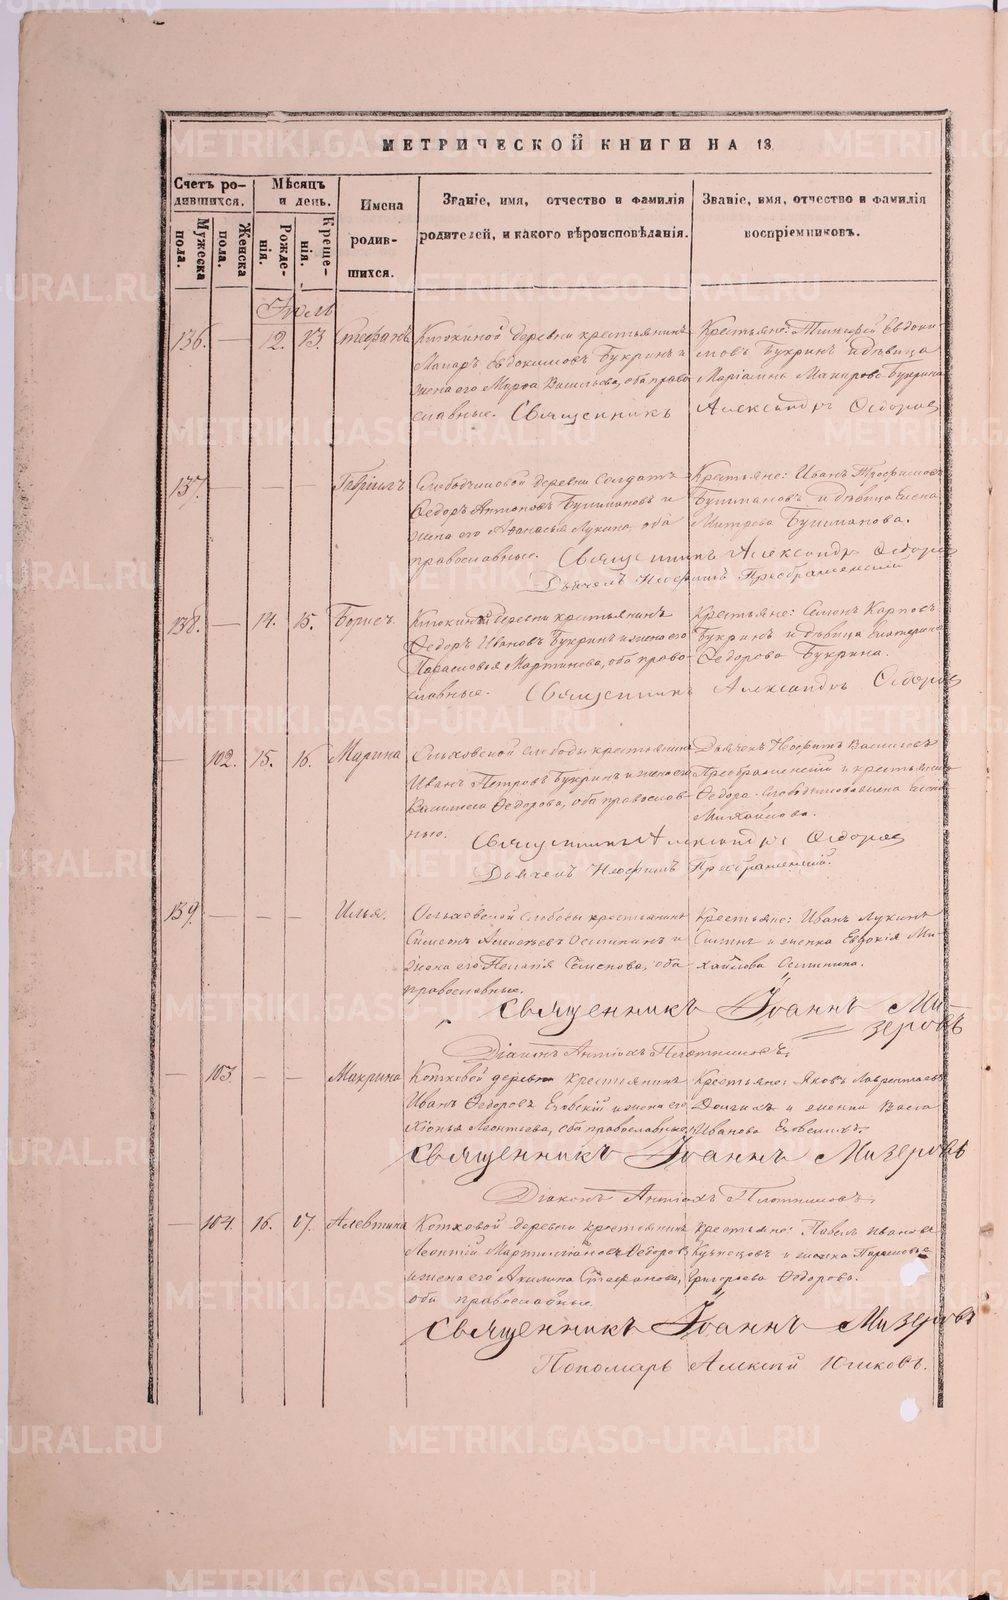 МЕТРИЧЕСКОЙ КНИГИ НА 18
Счетъ ро-
дившихся.
Мѣсяцъ
и день.
Имена
родив-
шихся.
Званіе, имя, отчество и фамилія
родителей, и какого вѣроисповѣданія.
Званіе, имя, отчество и фамилія
воспріемниковъ.
Мужеска
пола.
Женска
пола.
Рожде-
нія.
Креще-
нія.
Іюль
136. — 12. 13. Стефанъ
деревни крестьянинъ
Макаръ Евдокимовъ Букринъ и
жена его Марѳа Васильева, оба право-
славные. Священникъ Александръ Ѳедоровъ
Крестьяне: Тимофей Евдоки-
мовъ Букринъ и дѣвица
Маріамна Макарова Букрина
137. — — — Гавріилъ
деревни Солдатъ
Ѳедоръ Антоновъ Бушмановъ и
жена его Аѳанасія Лукина, оба
православные. Священникъ Александръ Ѳедоровъ
Крестьяне: Иванъ Трофимовъ
Бушмановъ и дѣвица Елена
Бушманова.
Дьячекъ Неофитъ Преображенскій
138. — 14. 15. Борисъ
деревни крестьянинъ
Ѳедоръ Ивановъ Букринъ и жена его
Парасковья Мартинова, оба право-
славные. Священникъ Александръ Ѳедоровъ
Крестьяне: Семенъ Карповъ
Букринъ и дѣвица Екатерина
Ѳедорова Букрина.
— 102. 15. 16. Марина
Слободы крестьянинъ
Иванъ Петровъ Букринъ и жена его
Василиса Ѳедорова, оба православ-
ные.
Дьячекъ Неофитъ Васильевъ
Преображенскій и
Ѳедора
Михайлова.
Священникъ Александръ Ѳедоровъ
Дьячекъ Неофитъ Преображенскій.
139. — — — Илья.
Ольховской Слободы крестьянинъ
Симеонъ Алексѣевъ Осининъ и
жена его Пелагія Семенова, оба
православные.
Крестьяне: Иванъ Лукинъ
и женка Евдокія Ми-
хайлова Осинина.
Священникъ Іоаннъ Ми-
зеровъ
Діаконъ Антіохъ Плотниковъ.
— 103. — — Макрина
Котковой деревни крестьянинъ
Иванъ Ѳедоровъ и жена его
Леонтьева, оба православные
Крестьяне: Яковъ Лаврентьевъ
и женка Васса
Иванова
Священникъ Іоаннъ Мизеровъ
Діаконъ Антіохъ Плотниковъ.
— 104. 16. 17. Алевтина
Котковой деревни крестьянинъ
Леонтій Мартиміановъ Ѳедоровъ
и жена его Акилина Стефанова,
оба православные.
Крестьяне: Павелъ Ивановъ
Кузнецовъ и женка Парасковья
Григорьева Ѳедорова.
Священникъ Іоаннъ Мизеровъ
Пономарь Алексій Югиковъ.
METRIKI.GASO-URAL.RU